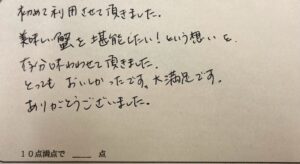 初めて利用させて頂きました。
美味しい蟹を堪能したい！という想いを
存分味わわせて頂きました。
とっても おいしかったです。大満足です。
ありがとうございました。
10点満点で ＿＿ 点